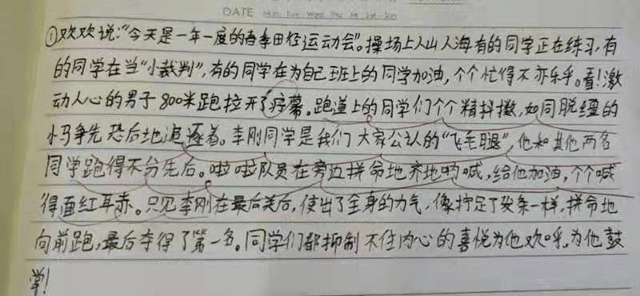 DATE Mon Tue Wed Thu Fri Sat Sun
①欢欢说:“今天是一年一度的春季田径运动会”。操场上人山人海有的同学正在练习,有
的同学在当“小裁判”,有的同学在为自己班上的同学加油,个个忙得不亦乐乎。看!激
动人心的男子800米跑拉开了序幕。跑道上的同学们个个精抖擞,如同脱缰的
小马争先恐后地追逐着。李刚同学是我们大家公认的“飞毛腿”,他和其他两名
同学跑得不分先后。啦啦队员在旁边拼命地齐地呐喊,给他加油,个个喊
得面红耳赤。只见李刚在最后关后,使出了全身的力气,像拧足了发条一样,拼命地
向前跑,最后夺得了第一名。同学们都抑制不住内心的喜悦为他欢呼,为他鼓
学!